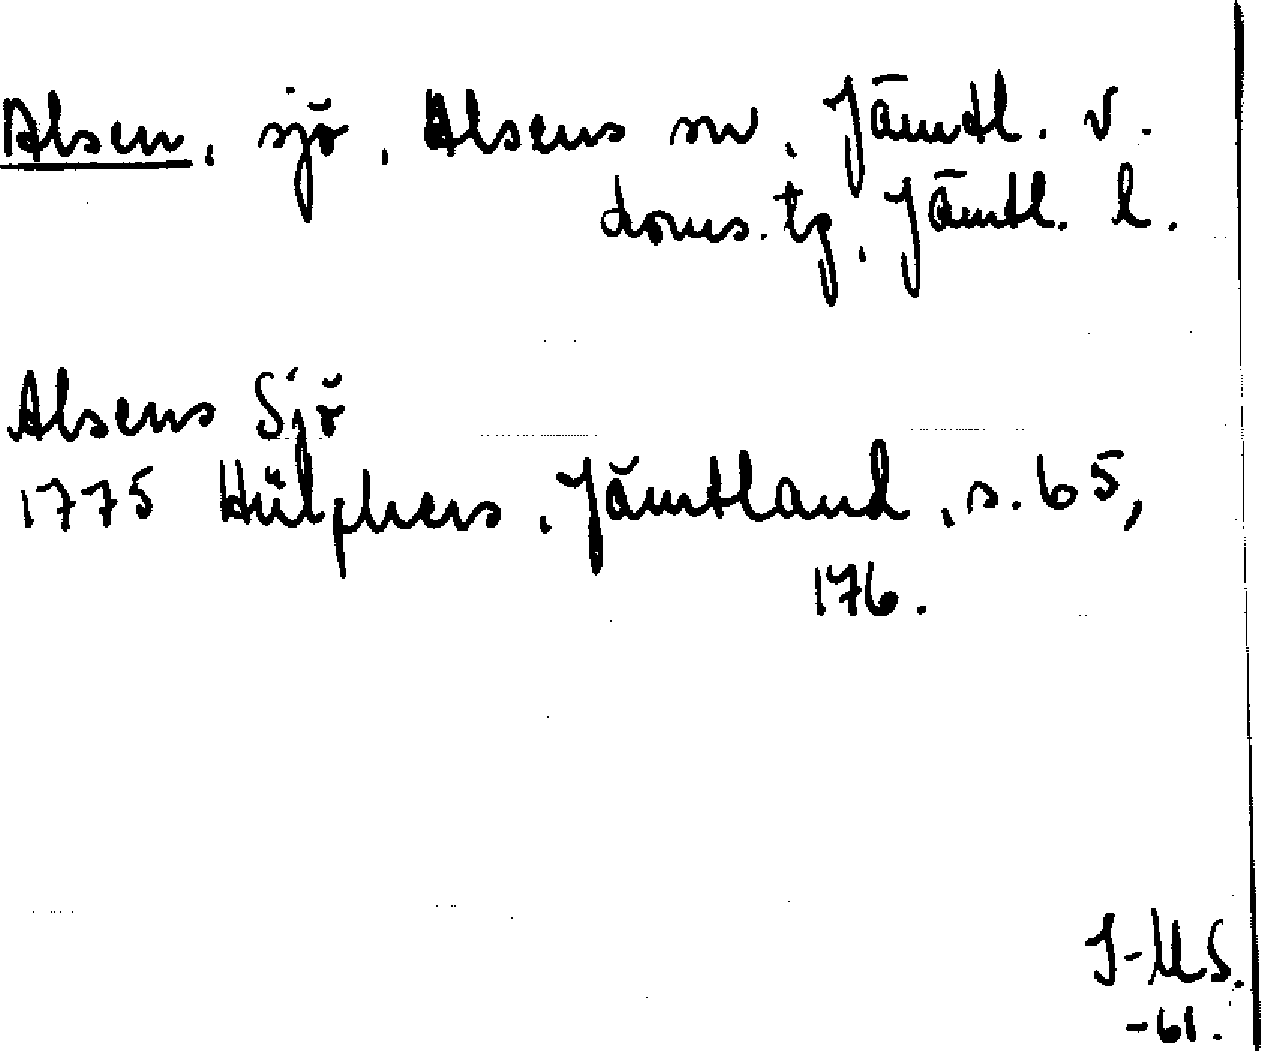 Alsen, sjö, Alsens sn, Jämtl. v.
doms. tg, Jämtl. l.
Alsens Sjö
1775 Hülphers, Jämtland, s. 65,
176.
J-MS.
-61.